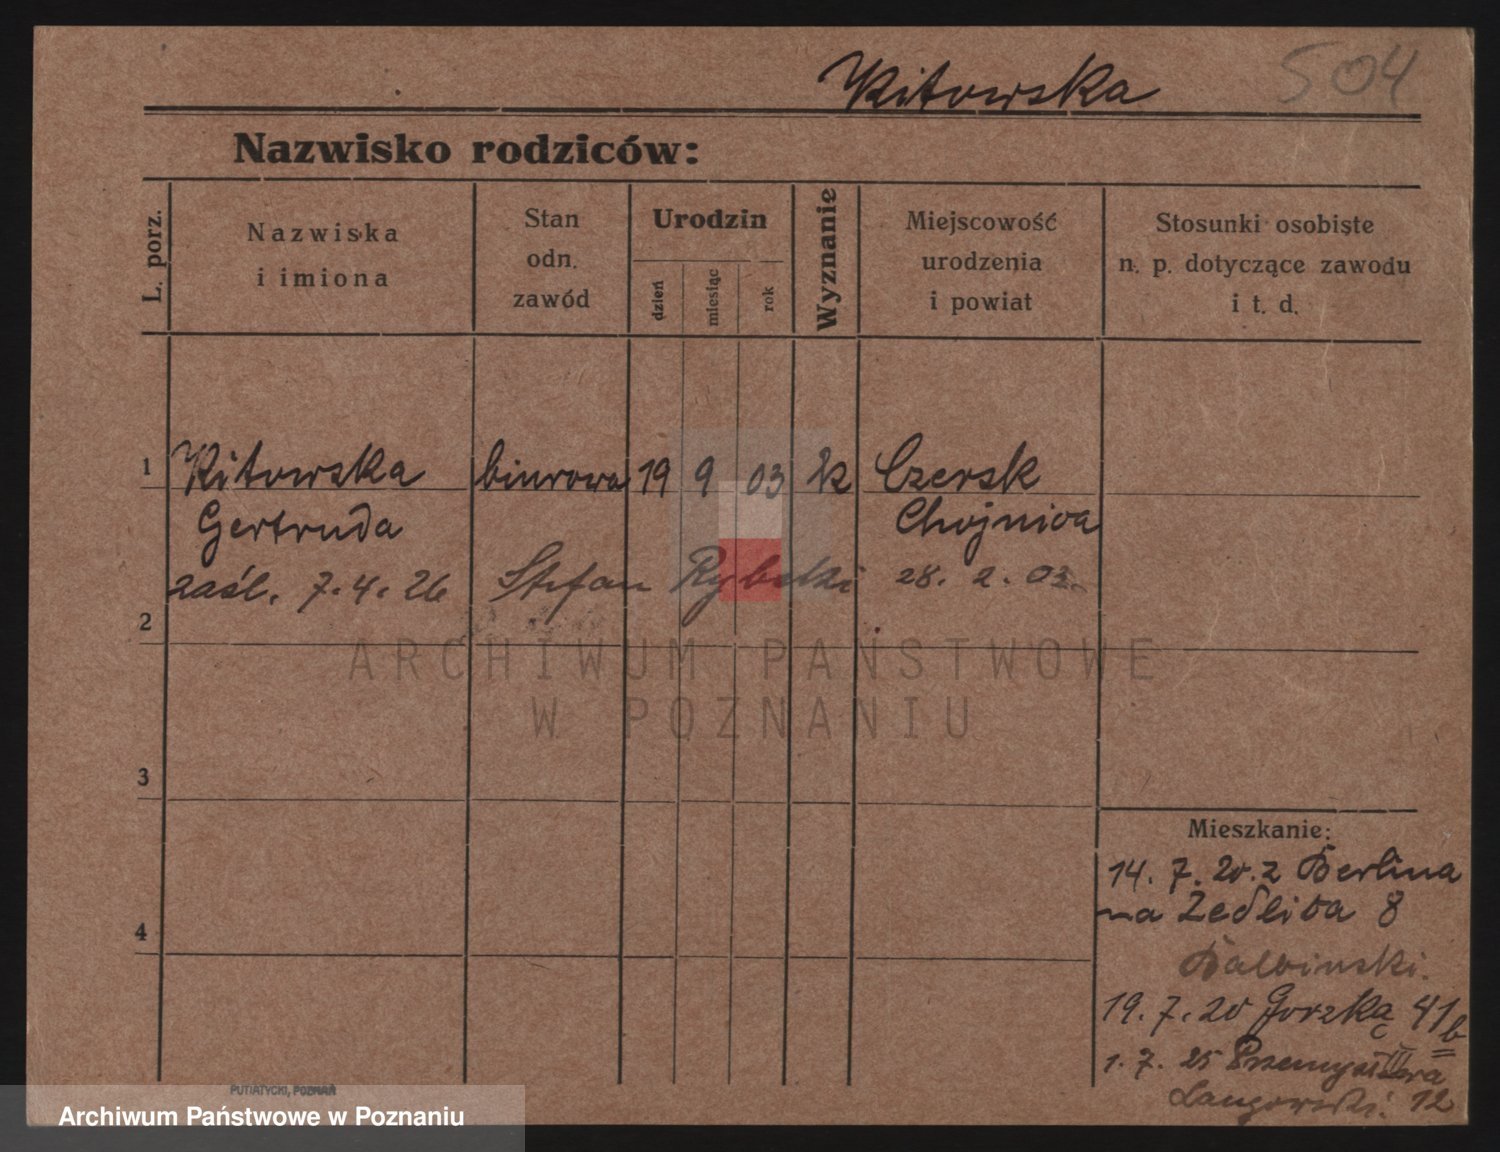 Kitowska 504
Nazwisko rodziców:
L. porz.
Nazwiska
i imiona
Stan
odn.
zawód
Urodzin
dzień
miesiąc
rok
Wyznanie
Miejscowość
urodzenia
i powiat
Stosunki osobiste
n. p. dotyczące zawodu
i t. d.
1 Kitowska biurowa 19 9 03 k Czersk
Gertruda Chojnica
zaśl. 7.4.26 Stefan 28. 2. 03.
2
ARCHIWUM PAŃSTWOWE
W POZNANIU
3
Mieszkanie:
14. 7. 20. z Berlina
na Zedlica 8
4
Balbinski.
19. 7. 20 Gorzką 41b
1. 7. 25 12
PUTIATYCKI, POZNAŃ
Archiwum Państwowe w Poznaniu